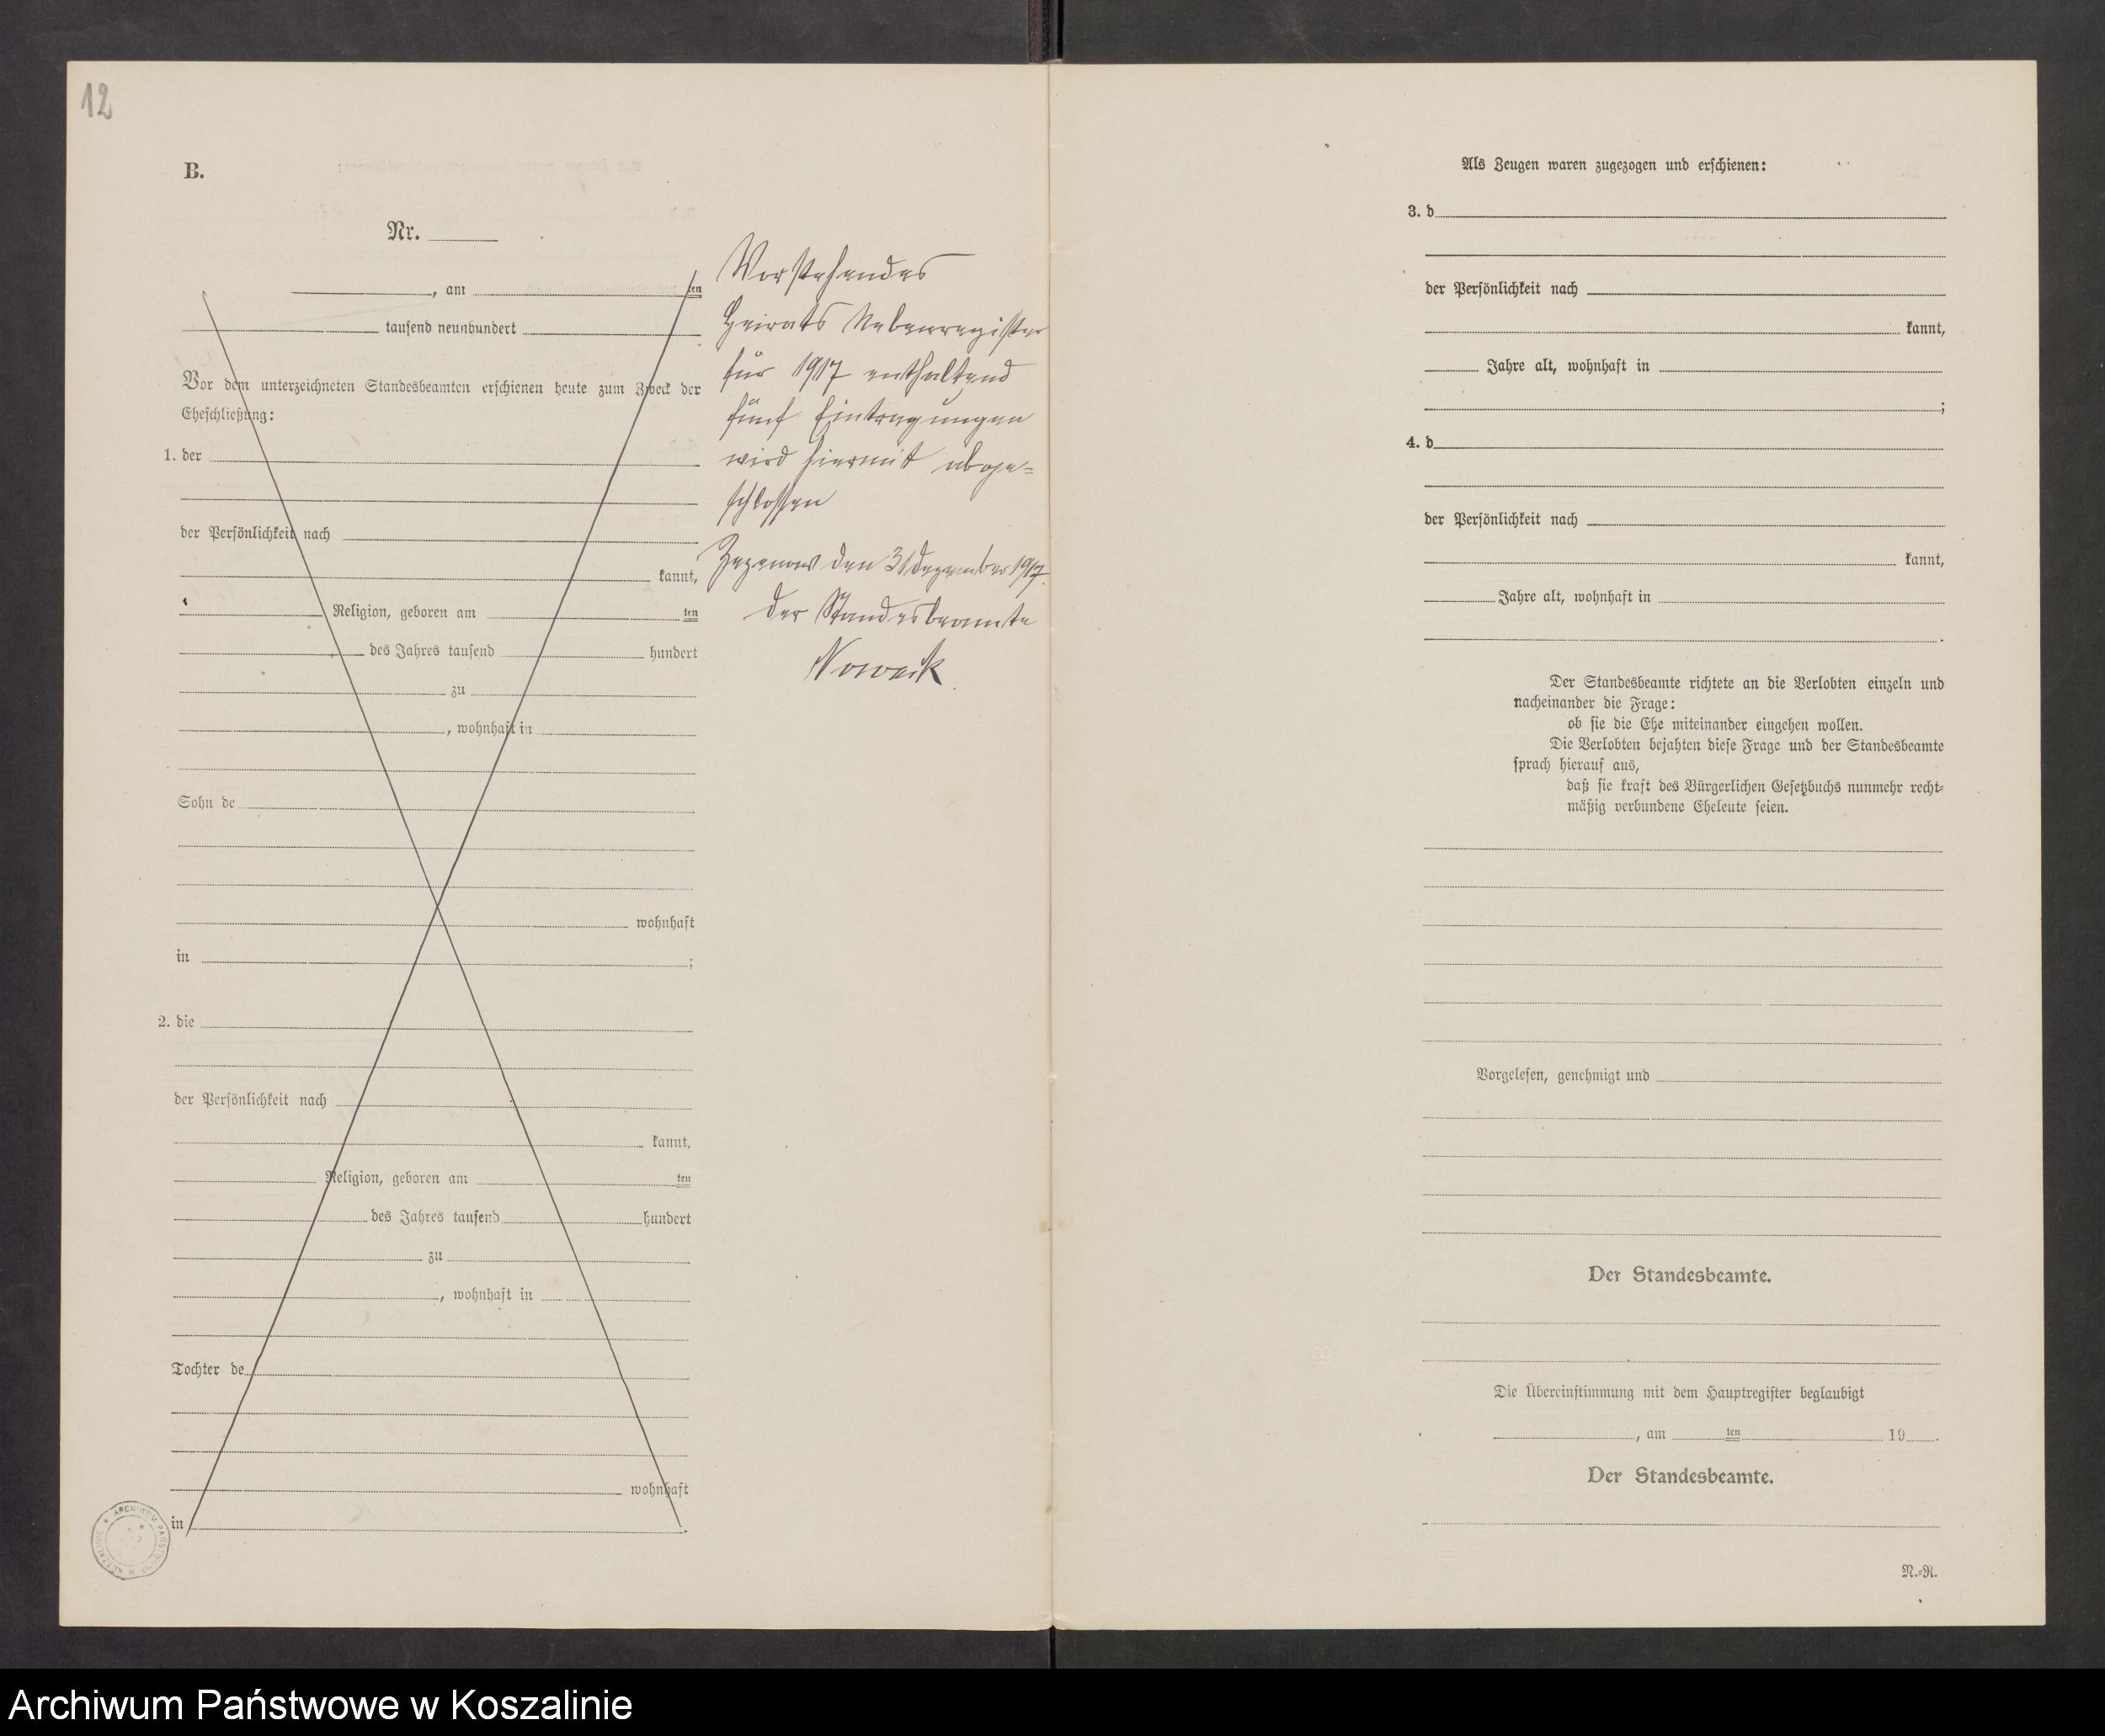 12
B.
Nr.
, am ten
tausend neunhundert
Vor dem unterzeichneten Standesbeamten erschienen heute zum Zweck der
Eheschließung:
1. der
der Persönlichkeit nach
kannt,
Religion, geboren am ten
des Jahres tausend hundert
zu
, wohnhaft in
Sohn de
wohnhaft
in ;
2. die
der Persönlichkeit nach
kannt,
Religion, geboren am ten
des Jahres tausend hundert
zu
, wohnhaft in
Tochter de
wohnhaft
in .
Vorstehendes
Heirats Nebenregister
für 1917 enthaltend
fünf Eintragungen
wird hiermit abge=
schlossen
Zezenow den 31 Dezember 1917.
Der Standesbeamte
Noweck
ARCHIWUM PAŃSTWOWE W KOSZALINIE
Als Zeugen waren zugezogen und erschienen:
3. d
der Persönlichkeit nach
kannt,
Jahre alt, wohnhaft in
;
4. d
der Persönlichkeit nach
kannt,
Jahre alt, wohnhaft in
.
Der Standesbeamte richtete an die Verlobten einzeln und
nacheinander die Frage:
ob sie die Ehe miteinander eingehen wollen.
Die Verlobten bejahten diese Frage und der Standesbeamte
sprach hierauf aus,
daß sie kraft des Bürgerlichen Gesetzbuchs nunmehr recht=
mäßig verbundene Eheleute seien.
Vorgelesen, genehmigt und
Der Standesbeamte.
Die Übereinstimmung mit dem Hauptregister beglaubigt
, am ten 19 .
Der Standesbeamte.
N.=R.
Archiwum Państwowe w Koszalinie